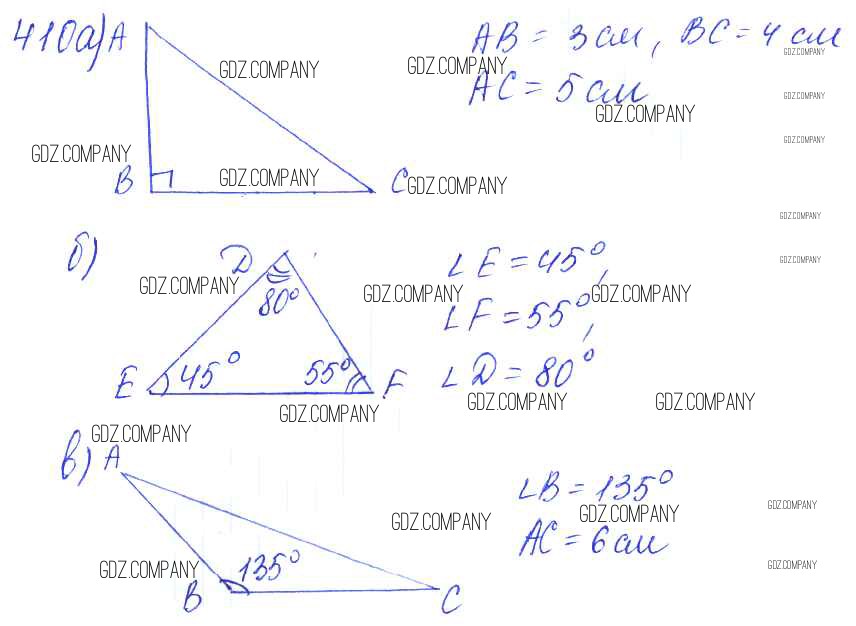 410а) A
AB = 3 см, BC = 4 см
GDZ.COMPANY
GDZ.COMPANY GDZ.COMPANY
AC = 5 см
GDZ.COMPANY
GDZ.COMPANY
GDZ.COMPANY
GDZ.COMPANY
B GDZ.COMPANY C GDZ.COMPANY
GDZ.COMPANY
б) D
∠E = 45°,
GDZ.COMPANY
GDZ.COMPANY 80° GDZ.COMPANY GDZ.COMPANY
∠F = 55°,
E 45° 55° F
∠D = 80°
GDZ.COMPANY GDZ.COMPANY GDZ.COMPANY
GDZ.COMPANY
в) A
∠B = 135°
GDZ.COMPANY GDZ.COMPANY GDZ.COMPANY
AC = 6 см
GDZ.COMPANY 135° GDZ.COMPANY
B C